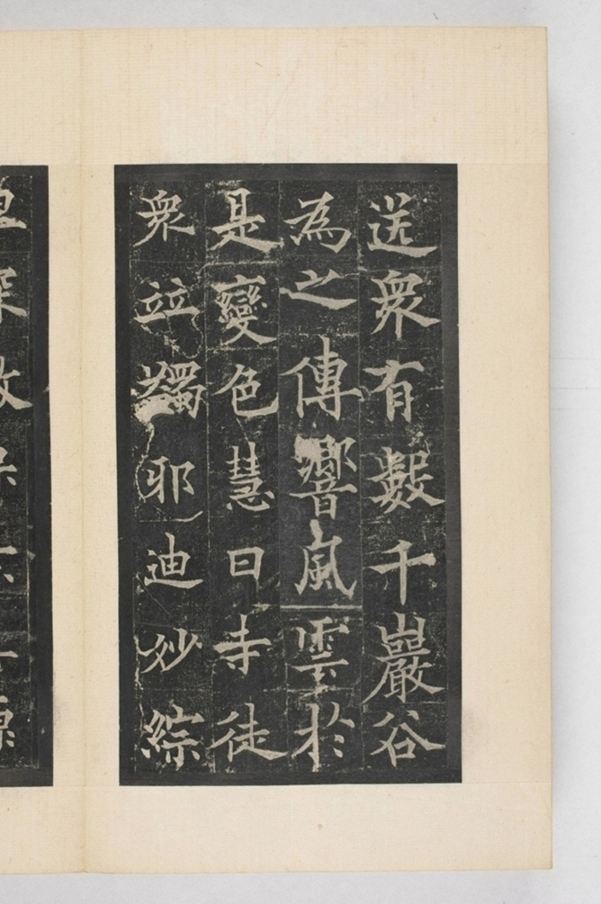 送衆有數千巖谷
為之傳響風雲於
是變色慧日寺徒
衆竝蠲耶迪妙綜